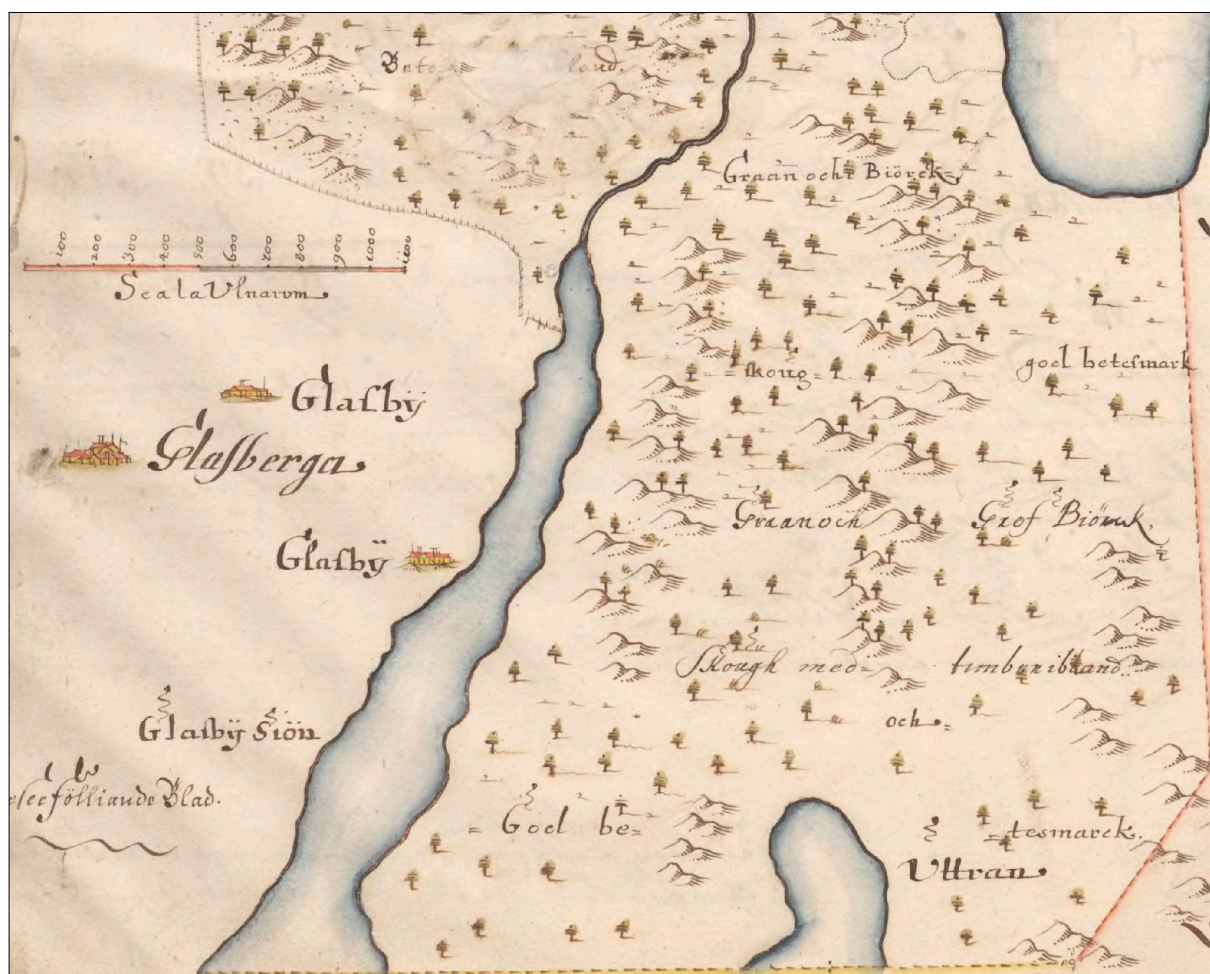 land.
Graan och Biörck=
100 200 300 400 500 600 700 800 900 1000 1100
Scala Ulnarum
= skoug =
goel betesmark
Glasbÿ
Glasberga
Graan och
Grof Biörck.
Glasbÿ
Skough med=
timber ibland.
och=
Glasbÿ Siön
fölliande Blad.
= Goel be=
=tesmarck.
Uttran